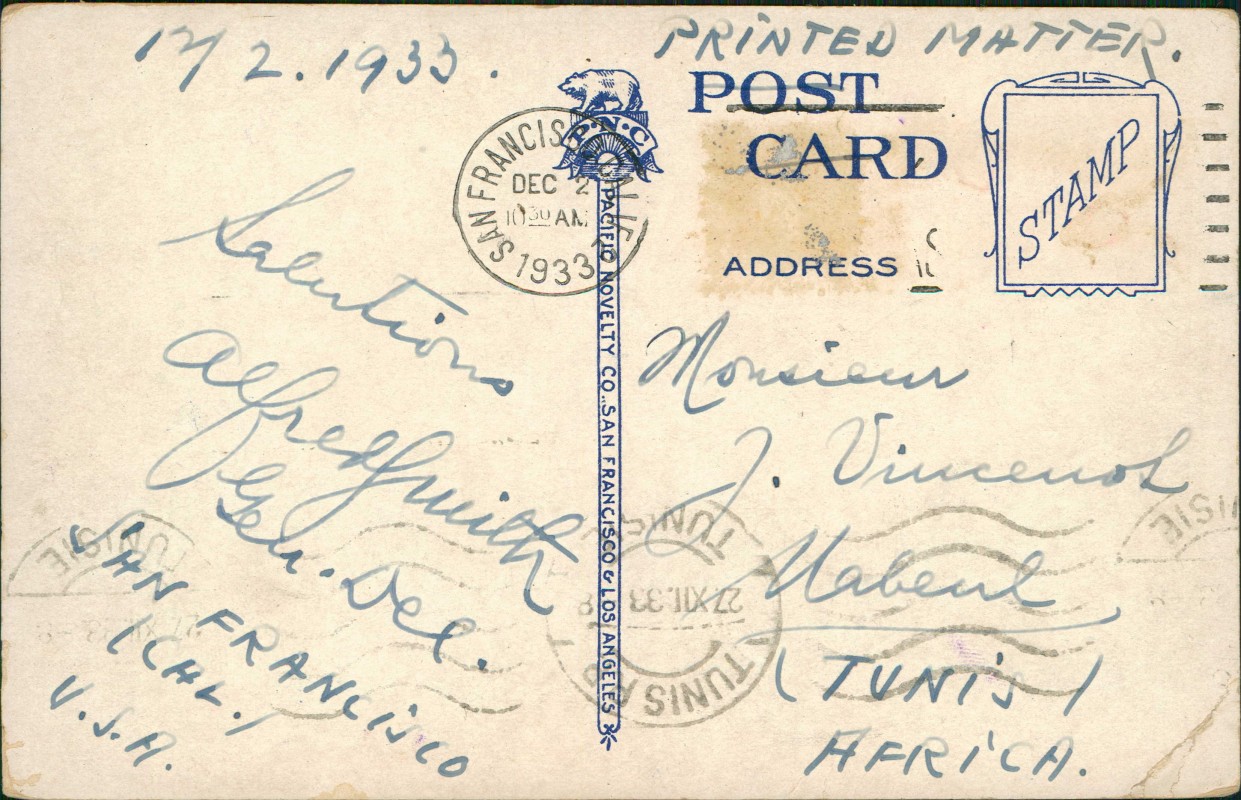 12/2.1933.
PRINTED MATTER.
POST
CARD
ADDRESS
STAMP
P·N·C
SAN FRANCISCO, CALIF.
DEC 2
10 30 AM
1933
PACIFIC NOVELTY CO., SAN FRANCISCO & LOS ANGELES
Salutions
Alfred Smith
Gen. Del.
SAN FRANCISCO
(CAL.)
U.S.A.
Monsieur
J. Vincenol
Nabeul
(TUNIS)
AFRICA.
TUNISIE
27 XII 33
TUNIS R.P.
TUNISIE
TUNISIE